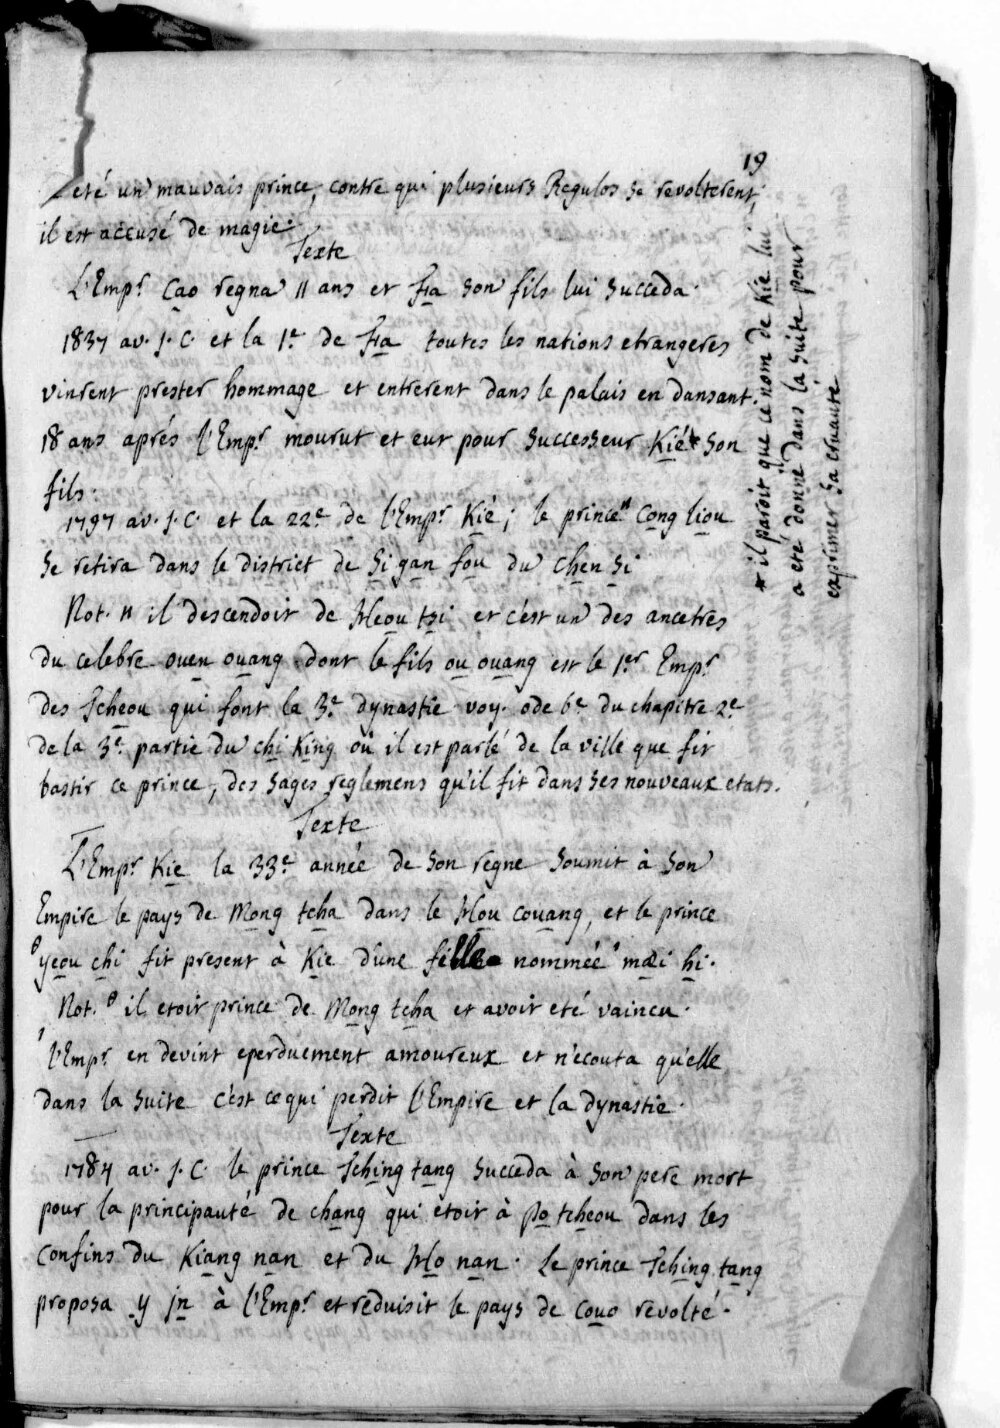 19
eté un mauvais prince, contre qui plusieurs Regulos se revolterent.
il est accusé de magie.
Texte
L'Emp.r Cao regna 11 ans et Fa son fils lui succeda.
1837 av. J. C. et la 1.e de Fa toutes les nations etrangeres
vinrent prester hommage et entrerent dans le palais en dansant.
18 ans aprés l'Emp.r mourut et eut pour successeur Kié* son
fils.
1797 av. J. C. et la 22.e de l'Emp.r Kié; le prince " Cong liou
se retira dans le district de Si gan fou du Chen si
Not. " il descendoit de Heou tsi et c'est un des ancetres
du celebre ouen ouang dont le fils ou ouang est le 1.er Emp.r
des Tcheou qui font la 3.e dynastie voy. ode 6.e du chapitre 2.e
de la 3.e partie du chi King où il est parlé de la ville que fit
bastir ce prince, des sages reglemens qu'il fit dans ses nouveaux etats.
Texte
L'Emp.r Kie la 33.e année de son regne soumit à son
Empire le pays de Mong tcha dans le Hou couang, et le prince
θ yeou chi fit present à Kie d'une fille nommée ' mæi hi.
Not. θ il etoit prince de Mong tcha et avoit eté vaincu.
' l'Emp.r en devint eperduement amoureux et n'ecouta qu'elle
dans la suite c'est ce qui perdit l'Empire et la dynastie.
Texte
1784 av. J. C. le prince Tching tang succeda à son pere mort
pour la principauté de chang qui etoit à Po tcheou dans les
confins du Kiang nan et du Ho nan. Le prince Tching tang
proposa y jn à l'Emp.r et reduisit le pays de couo revolté.
* il paroit que ce nom de Kié lui
a eté donné dans la suite pour
exprimer sa cruauté